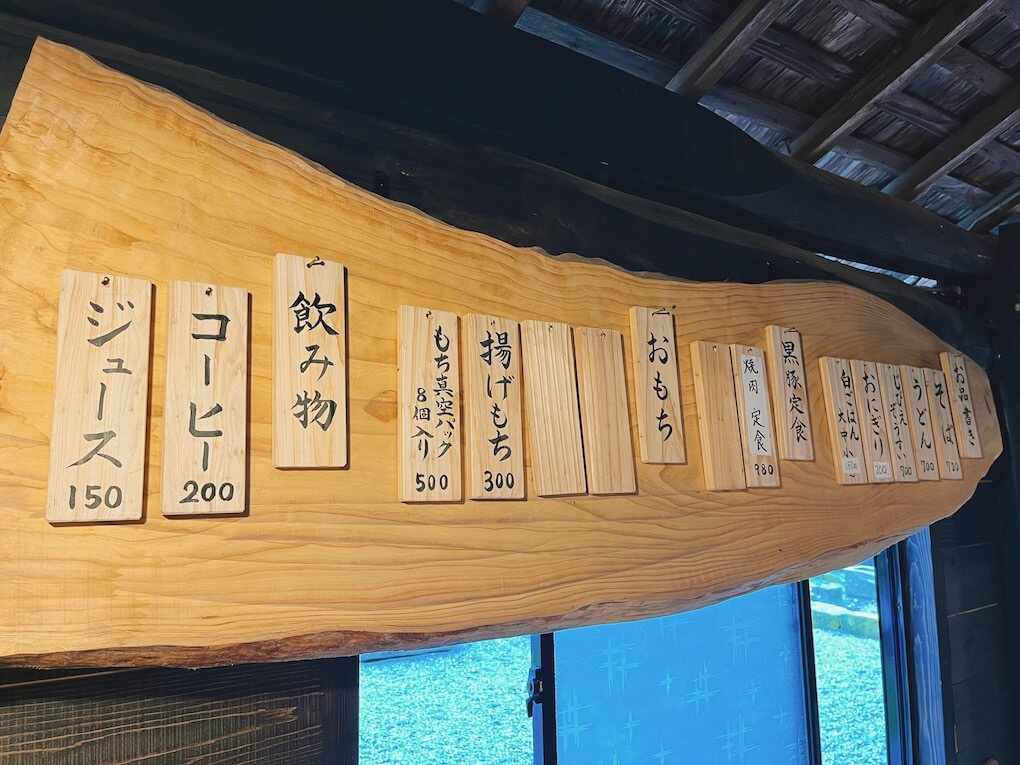 お品書き
そば
700
うどん
700
700
おにぎり
200
白ごはん
大中小
黒豚定食
焼肉 定食
980
おもち
揚げもち
300
もち真空パック
8個入り
500
飲み物
コーヒー
200
ジュース
150